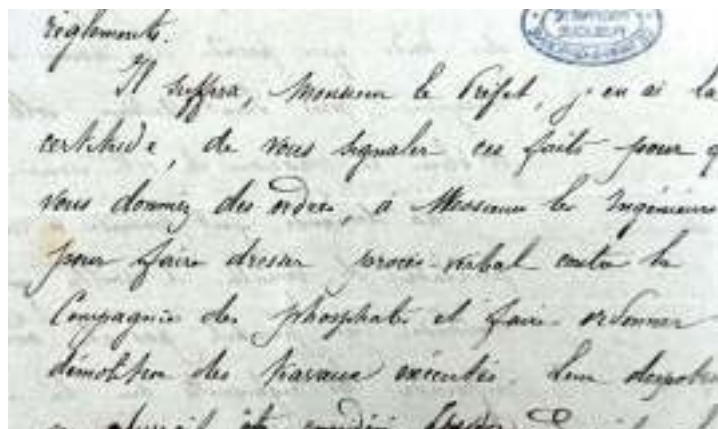 règlements.
Il suffira, Monsieur le Préfet, j'en ai la
certitude, de vous signaler ces faits pour q
vous donniez des ordres, à Messieurs les Ingénieurs
pour faire dresser procès-verbal contre la
Compagnie des phosphates et faire ordonner
démolition des travaux exécutés. Leur